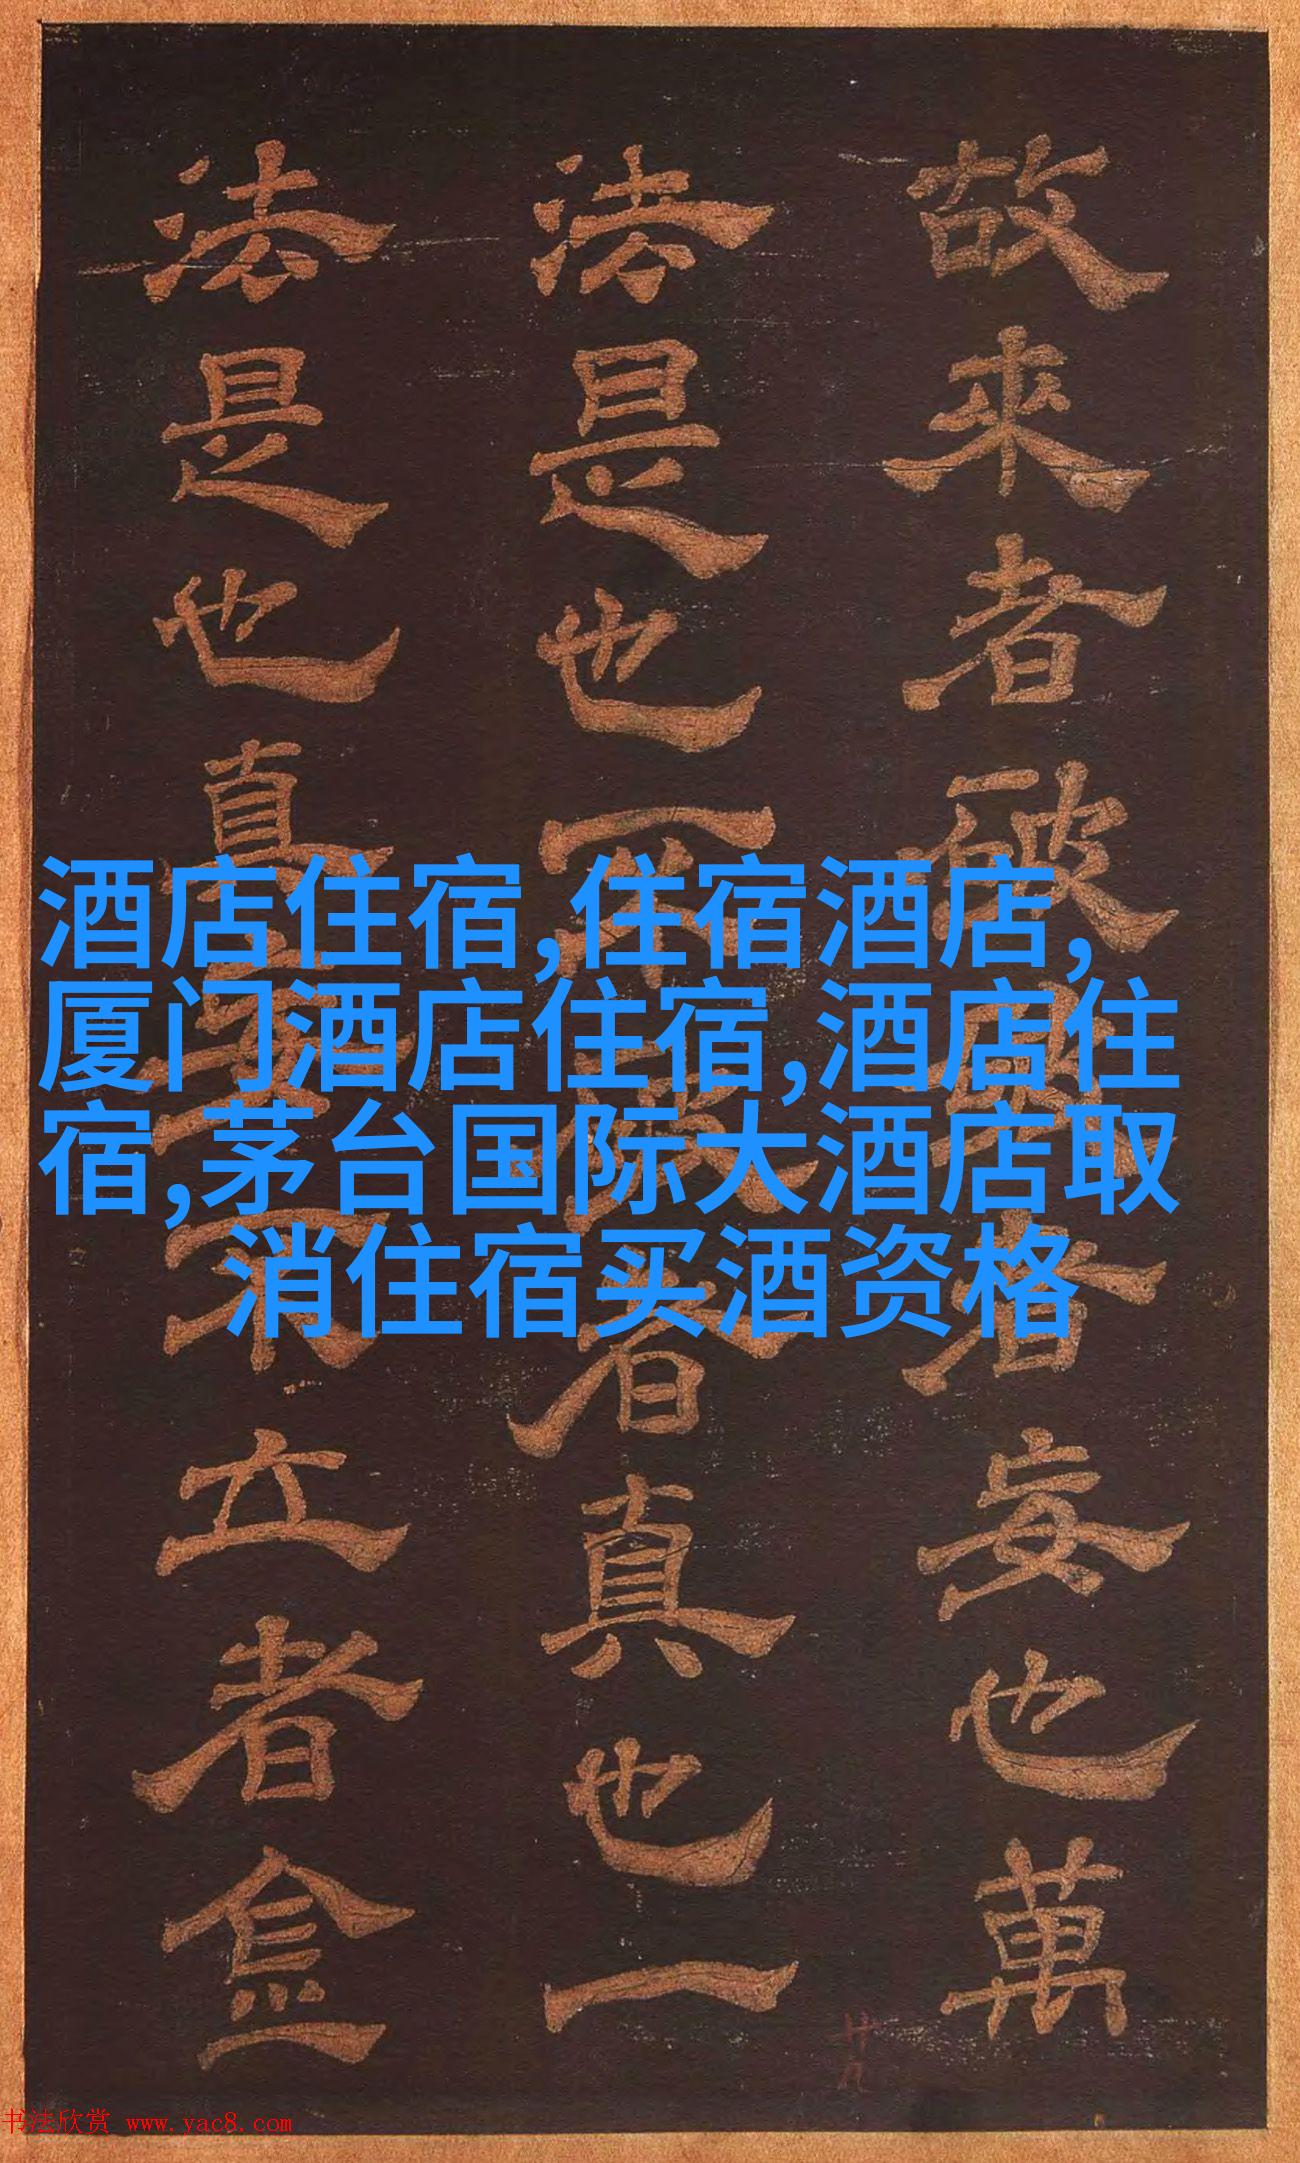 故來者者妄也萬
法是也者真也一
法是也真立者
酒店住宿,住宿酒店,
厦门酒店住宿,酒店住
宿,茅台国际大酒店取
消住宿买酒资格
廿九
书法欣赏 www.yac8.com